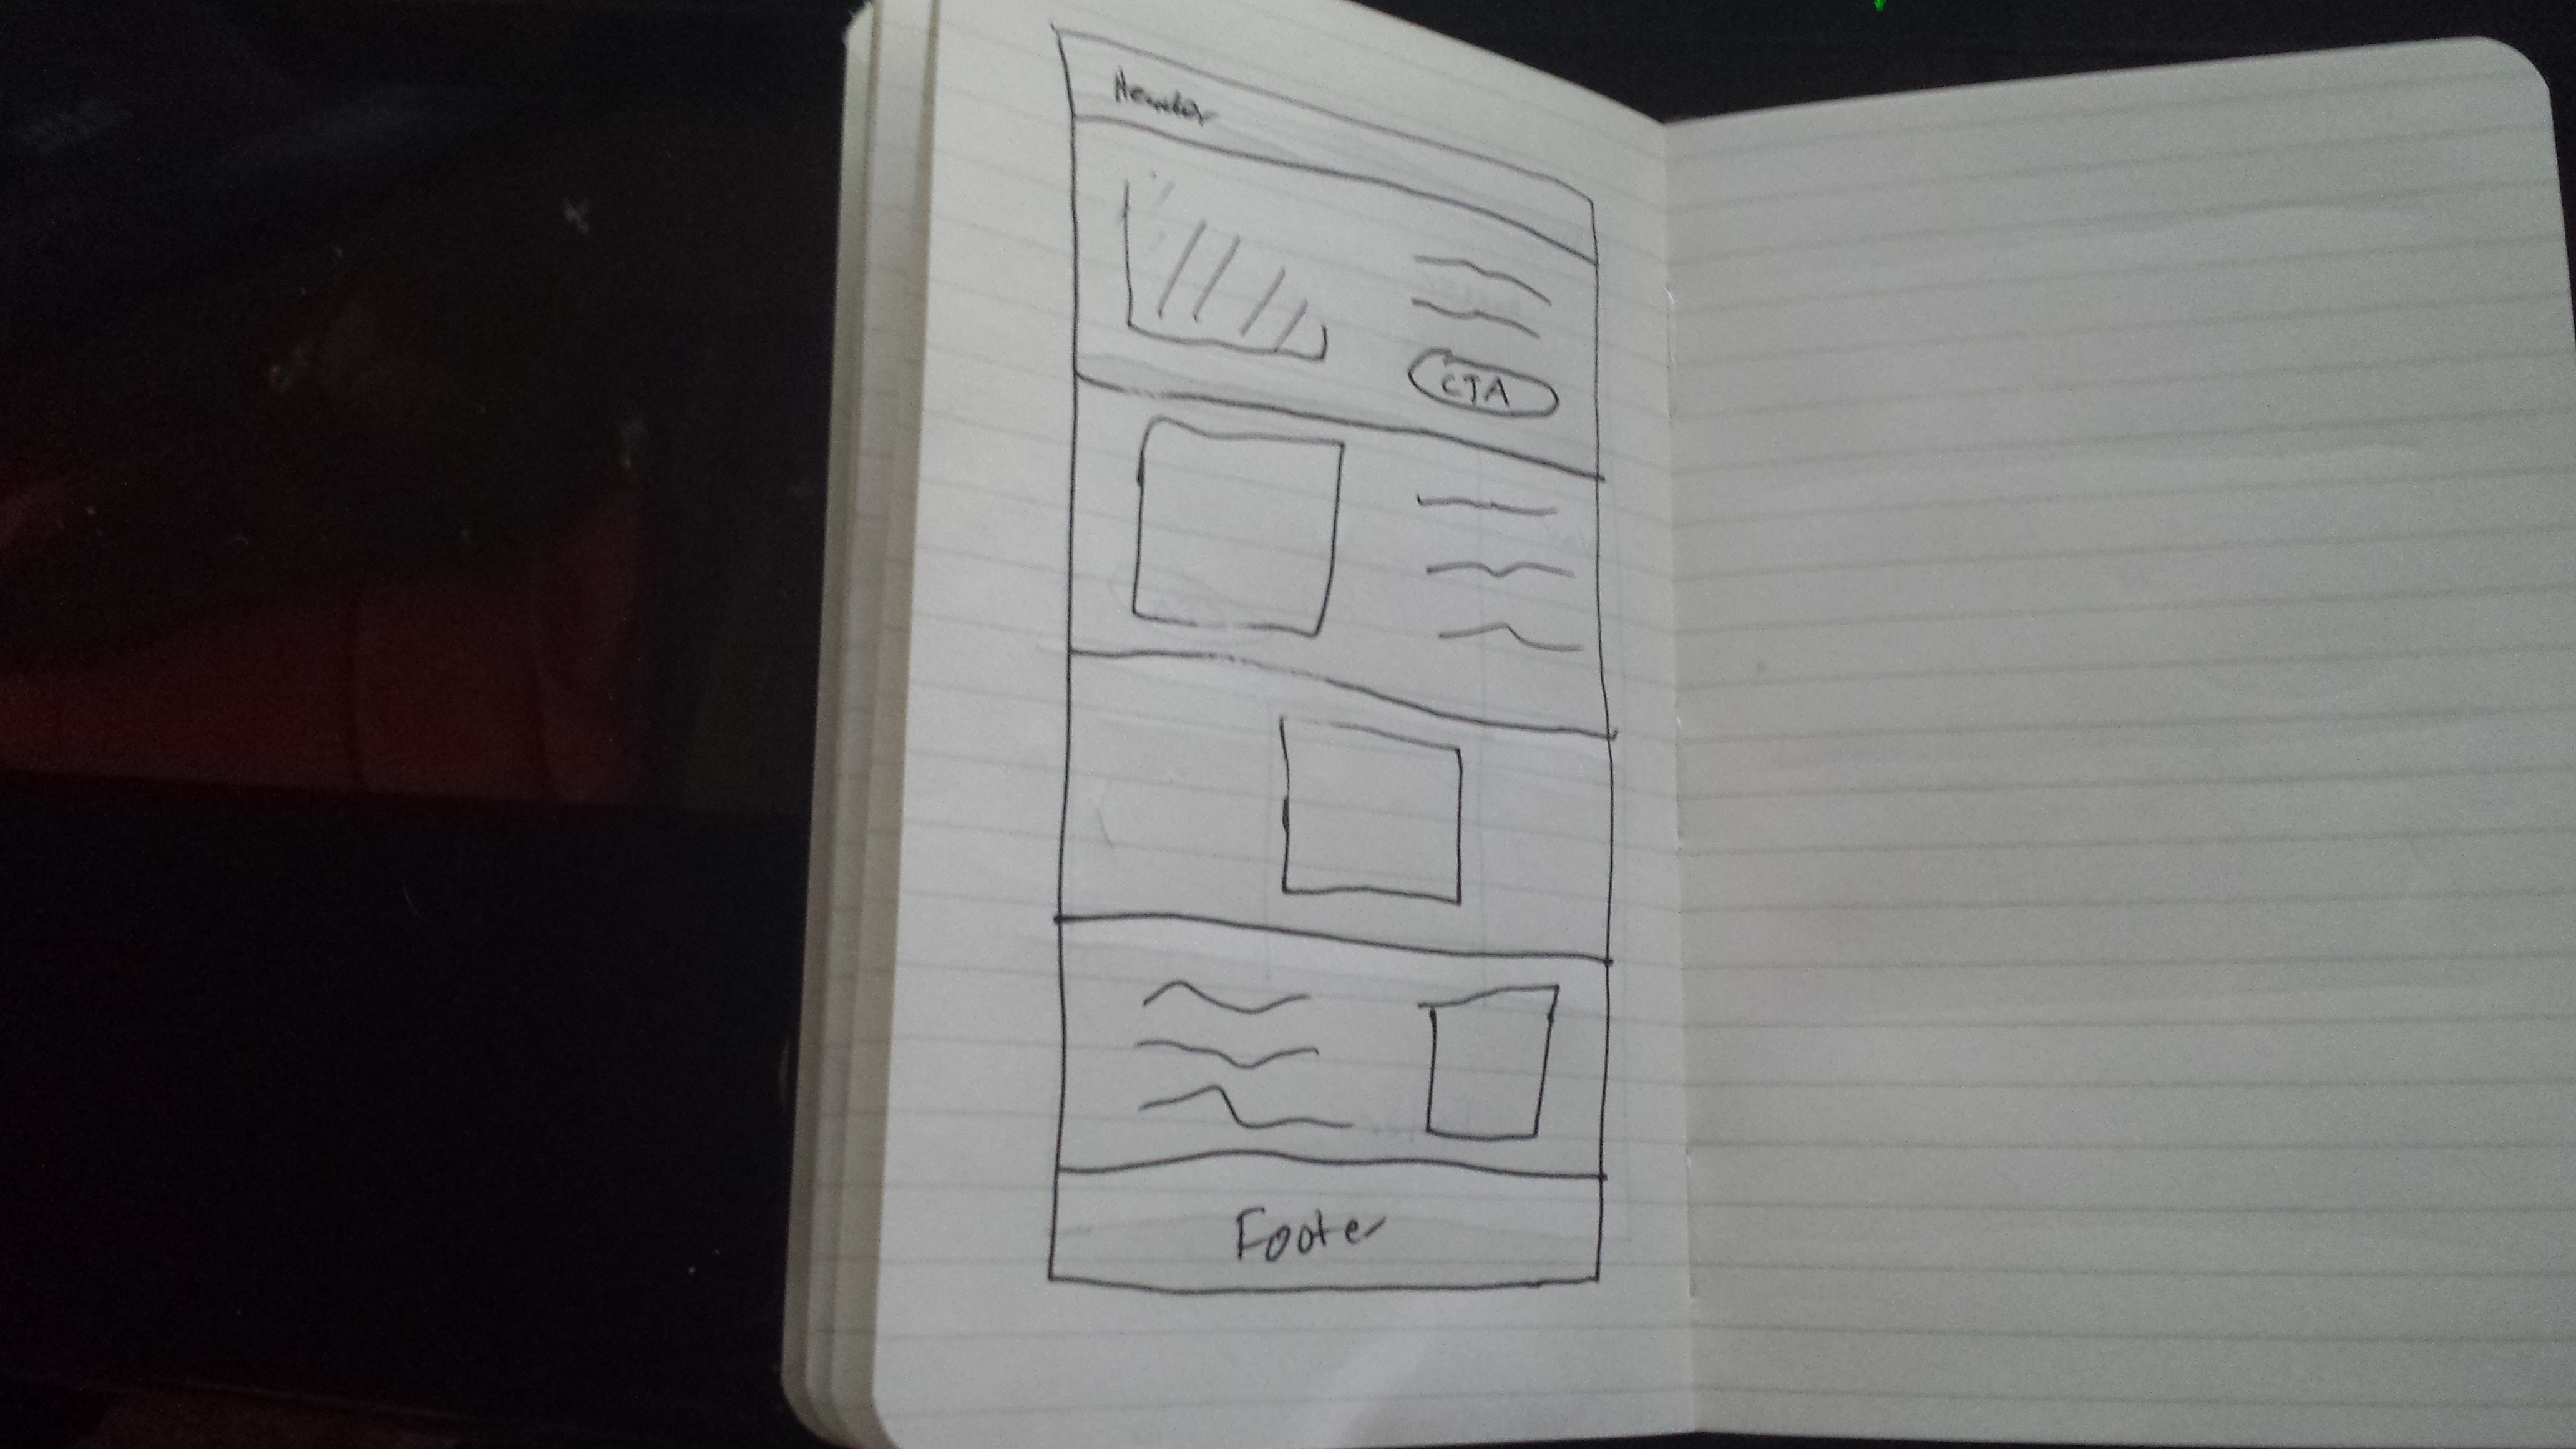 Header
CTA
Footer